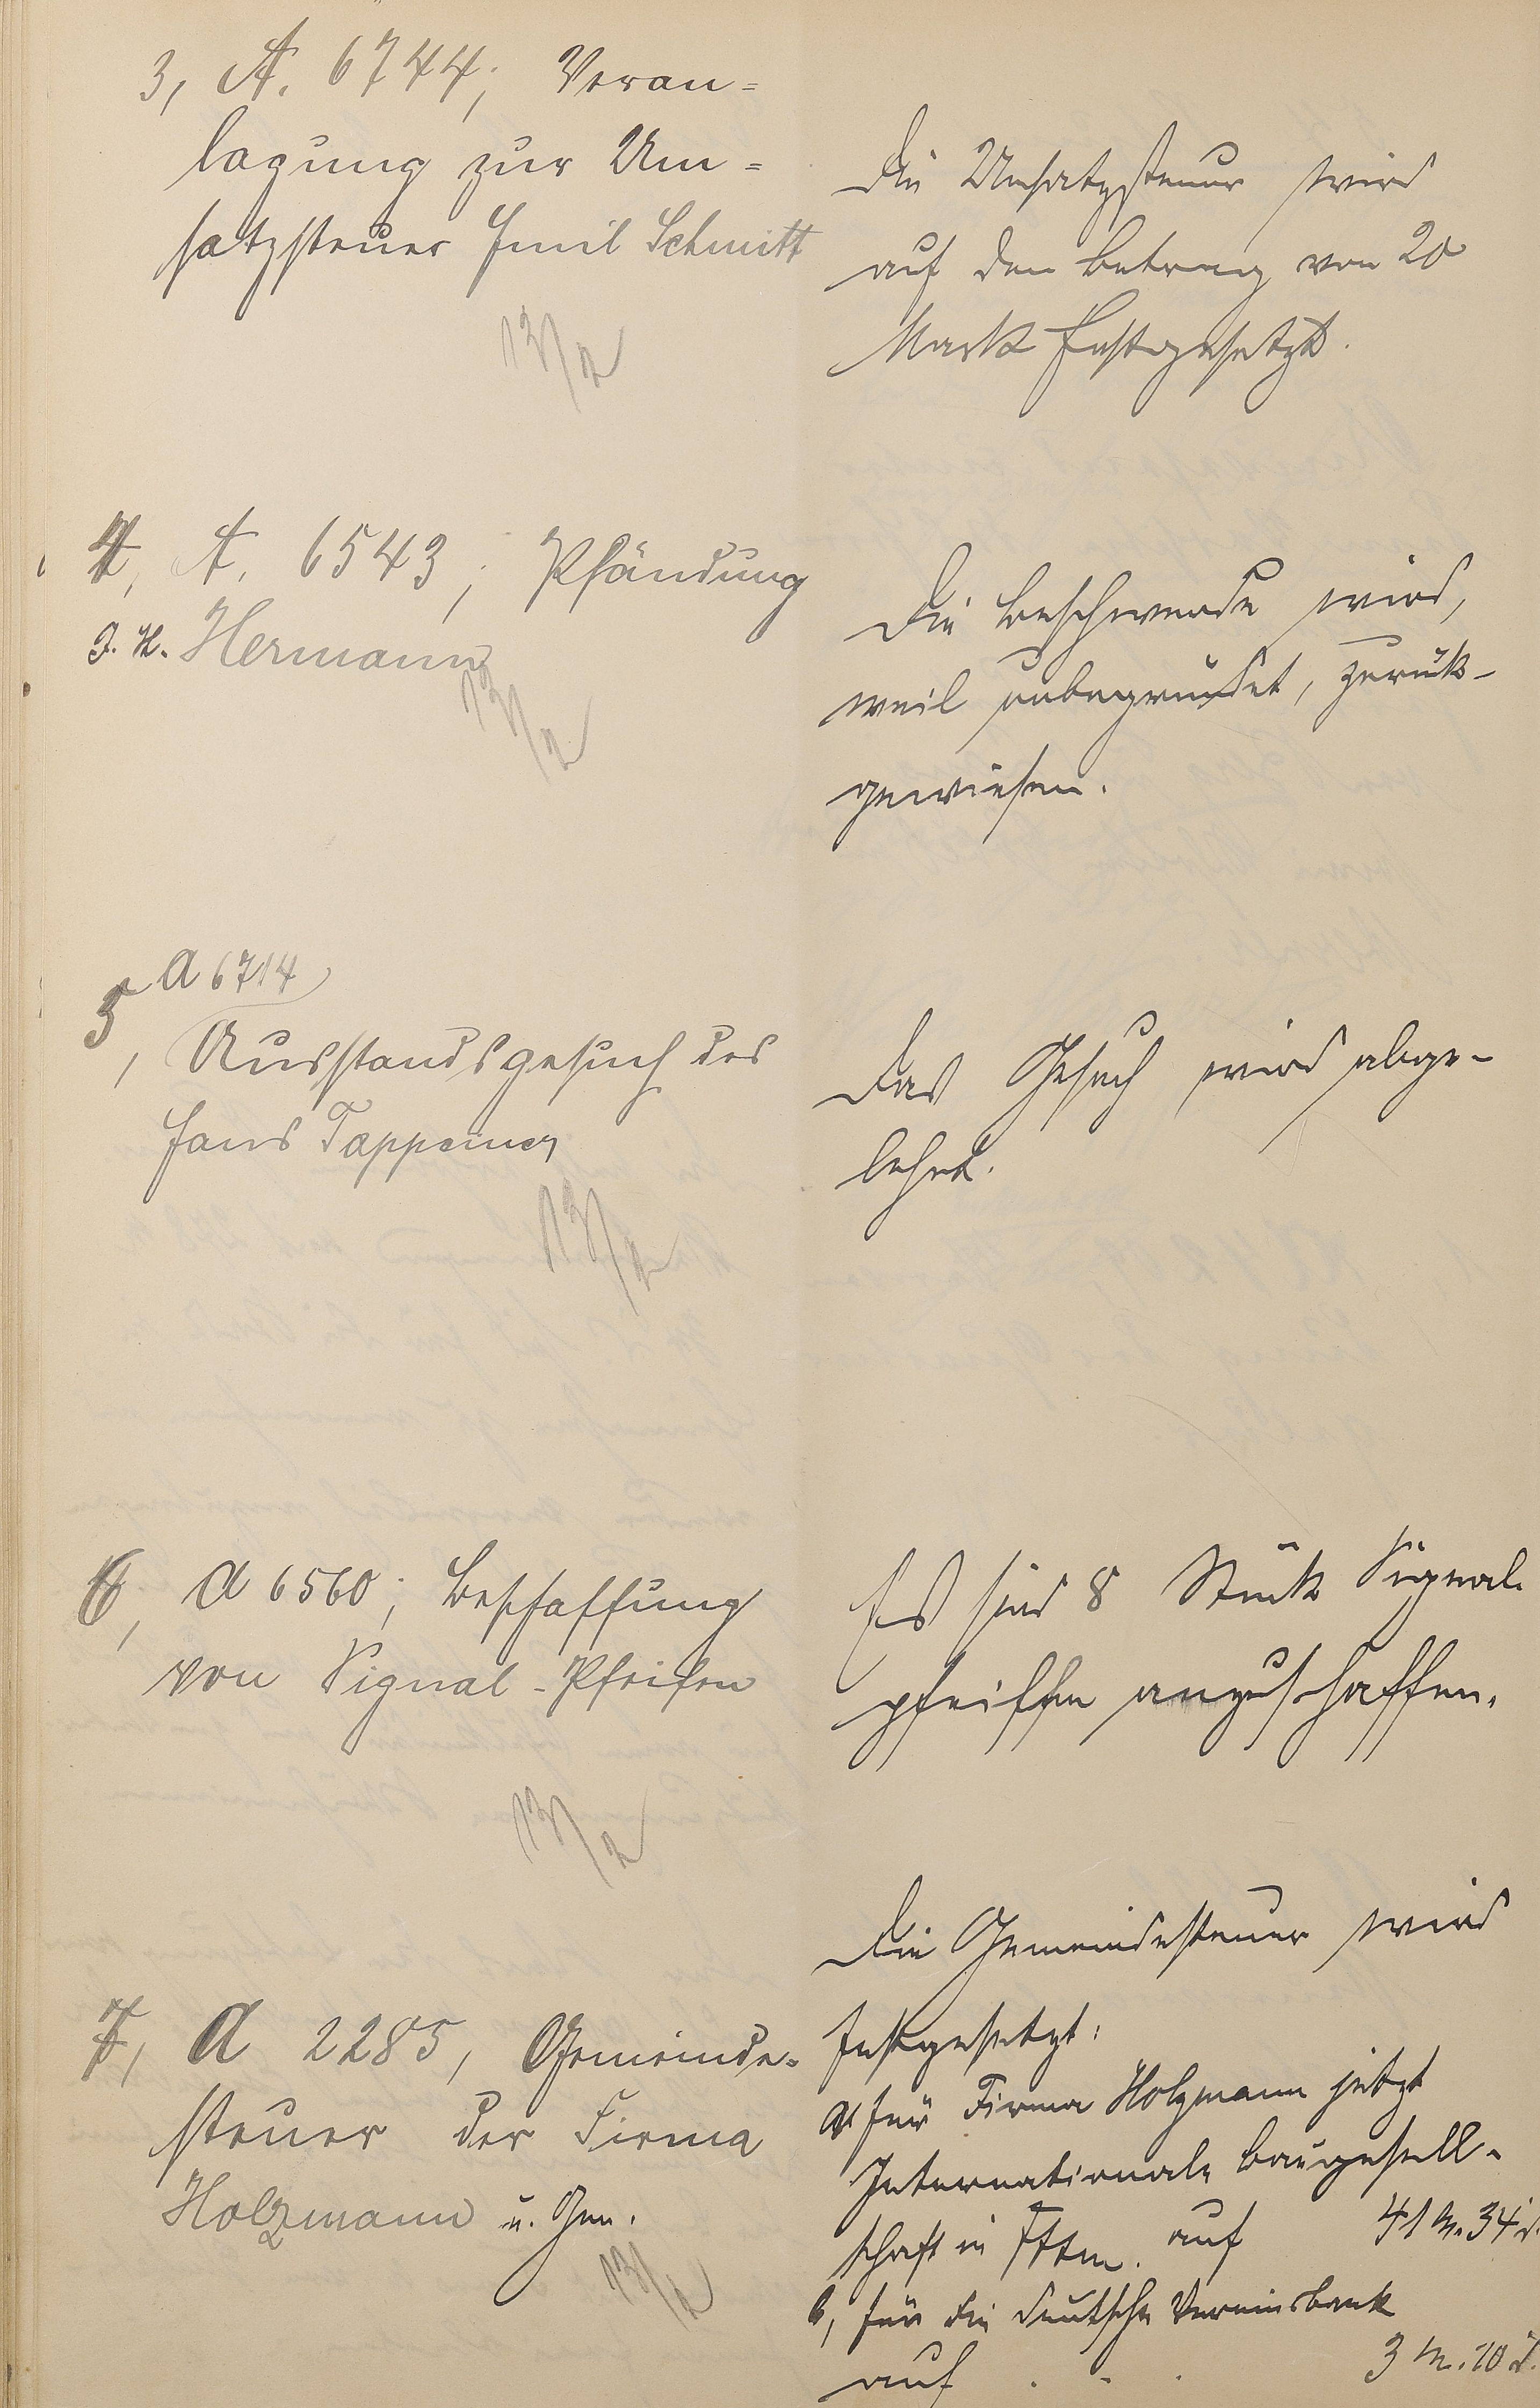 3, A. 6744; Veran=
lagung zur Um=
satzsteuer Emil Schmitt
13/2
Die Umsatzsteuer wird
auf den Betrag von 20
Mark festgesetzt.
4, A. 6543; Pfändung
J. H. Hermann
13/2
Die Beschwerde wird,
weil unbegründet, zurük-
gewiesen.
A 6714
5, Ausstandsgesuch des
Hans Tappeiner
13/2
Das Gesuch wird abge-
lehnt.
6, A 6560; Beschaffung
von Signal-Pfeifen
13/2
Es sind 8 Stük Signal
pfeiffen anzuschaffen.
7, A 2285, Gemeinde-
steuer der Firma
Holzmann u. Gen.
13/2
Die Gemeindesteuer wird
festgesetzt:
a, für Firma Holzmann jetzt
Internationale Baugesell-
schaft in Fftm. auf 41 M. 34 d.
b, für die deutsche Vereinsbank
auf . . . 3 M. 10 d.